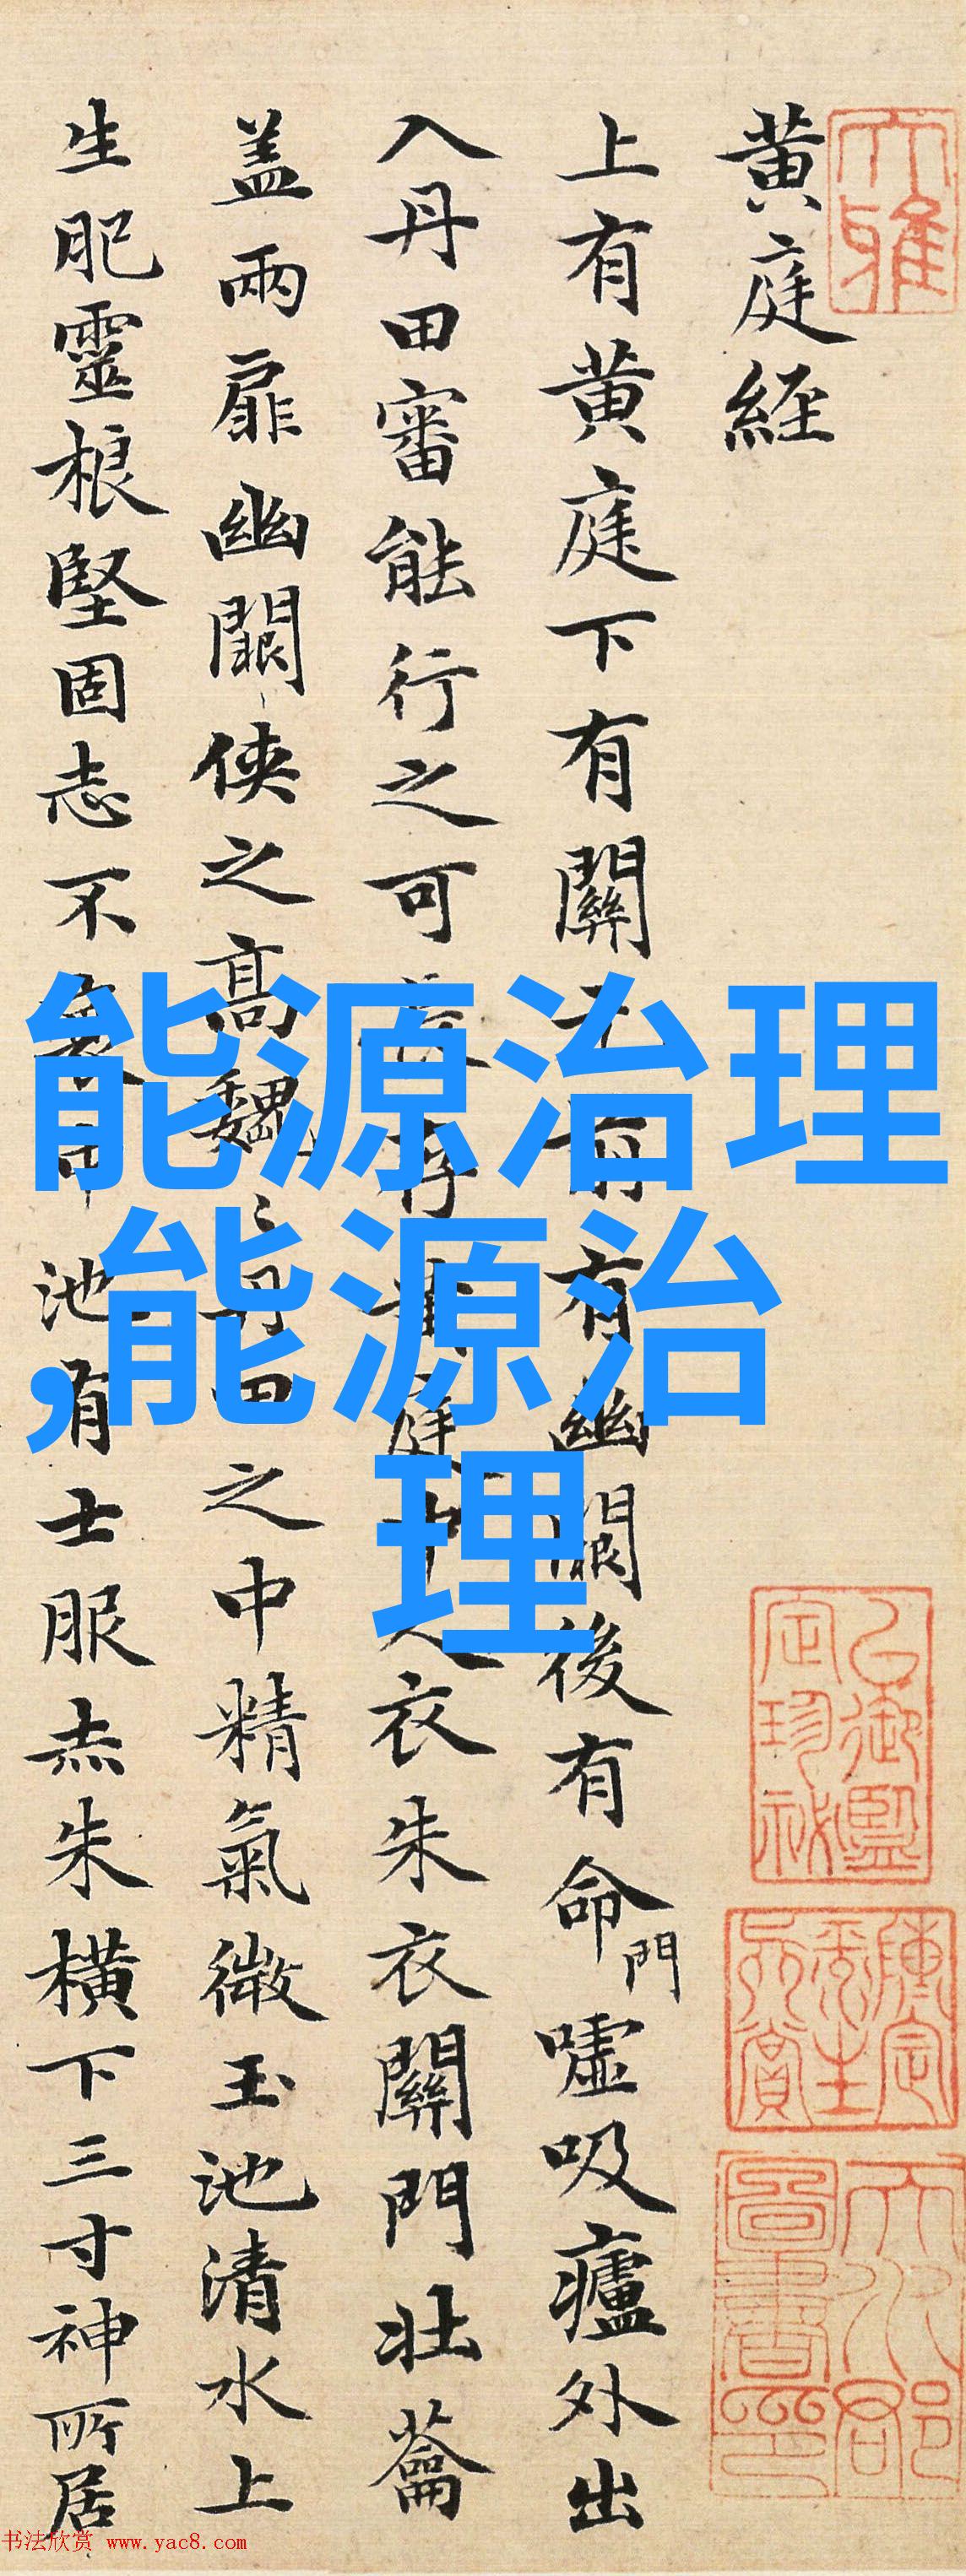 黄庭経
上有黄庭下有關前有幽闕後有命門嘘吸廬外出
入丹田審能行之可長存黄庭中人衣朱衣關門壮蘥
盖兩扉幽闕侠之高魏丹田之中精氣微玉池清水上
生肥靈根堅固志不衰中池有士服赤朱横下三寸神所居
能源治理
,能源治
理
书法欣赏 www.yac8.com